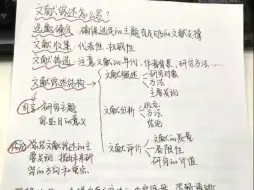 文献综述怎么写?
选题确定 确保选题的主题有足够的文献支撑
文献收集 代表性、权威性
文献筛选 注意文献的年代、作者背景、研究方法……
文献综述结构
文献概述 研究对象
方法
主要发现
引言 研究主题
意义
文献分析 观点
方法
结论
结论 总结文献综述的主
要发现 指出未来研
究的方向和重点
文献评价 文献的质量
局限性
研究的价值